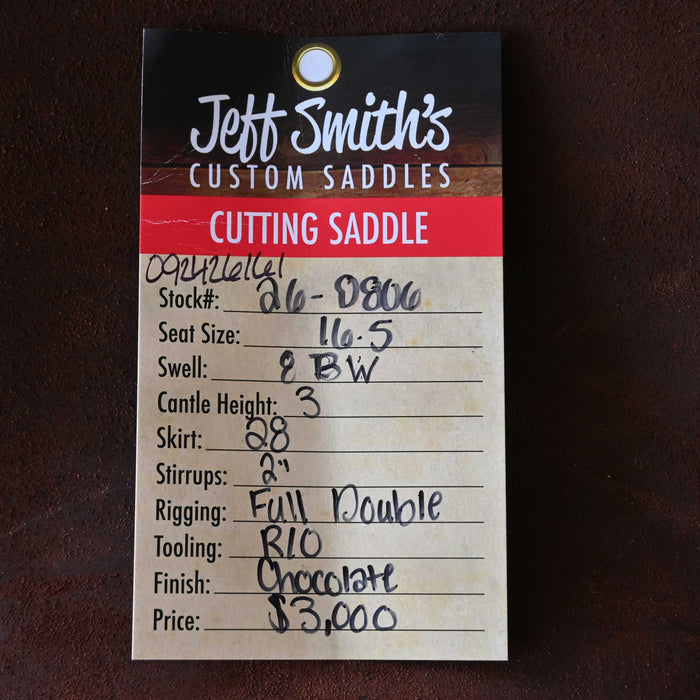 Jeff Smith's
CUSTOM SADDLES
CUTTING SADDLE
092426161
Stock#: 26-0806
Seat Size: 16.5
Swell: 8 BW
Cantle Height: 3
Skirt: 28
Stirrups: 2"
Rigging: Full Double
Tooling: RIO
Finish: Chocolate
Price: $3,000